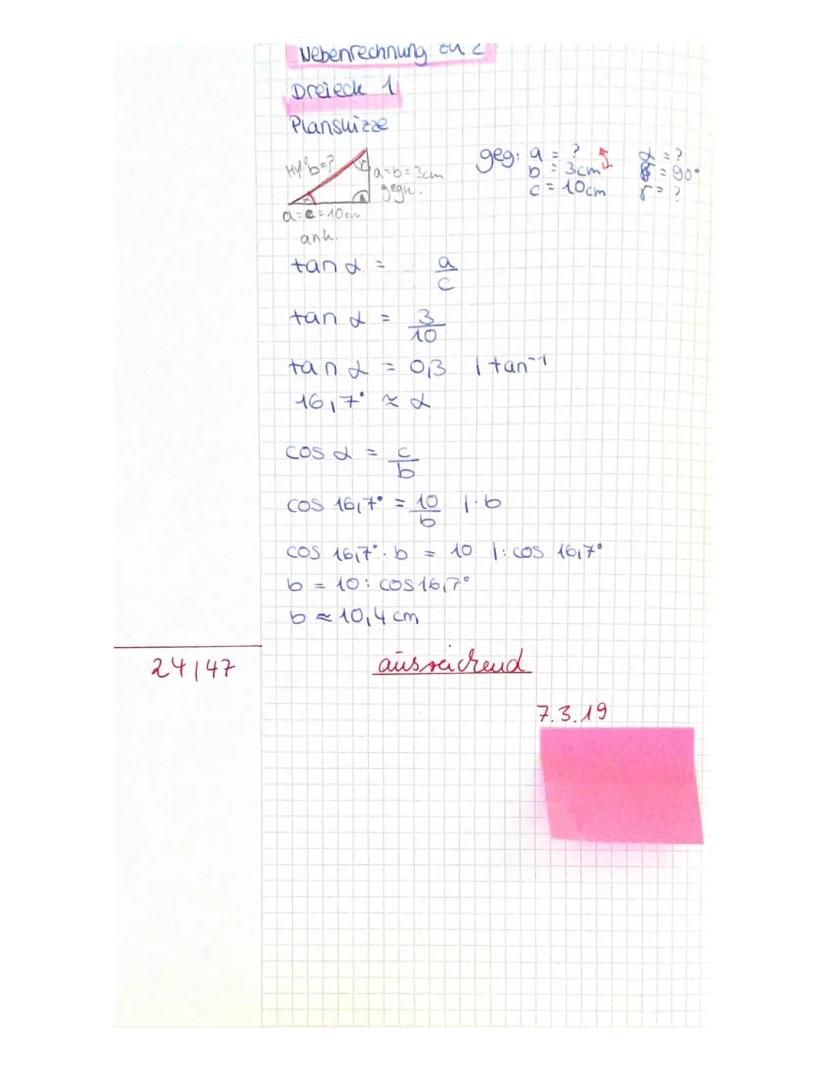 Nebenrechnung zu 2
Dreieck 1
Planskizze
Hyp b=?
a=b=3cm
gegk.
a=c=10cm
ank.
geg: a = ? α = ?
b = 3cm β = 90°
c = 10cm γ = ?
tan α = a/c
tan α = 3/10
tan α = 0,3 | tan⁻¹
16,7° ≈ α
cos α = c/b
cos 16,7° = 10/b | · b
cos 16,7° · b = 10 | : cos 16,7°
b = 10 : cos 16,7°
b ≈ 10,4 cm
24/47 ausreichend
7.3.19